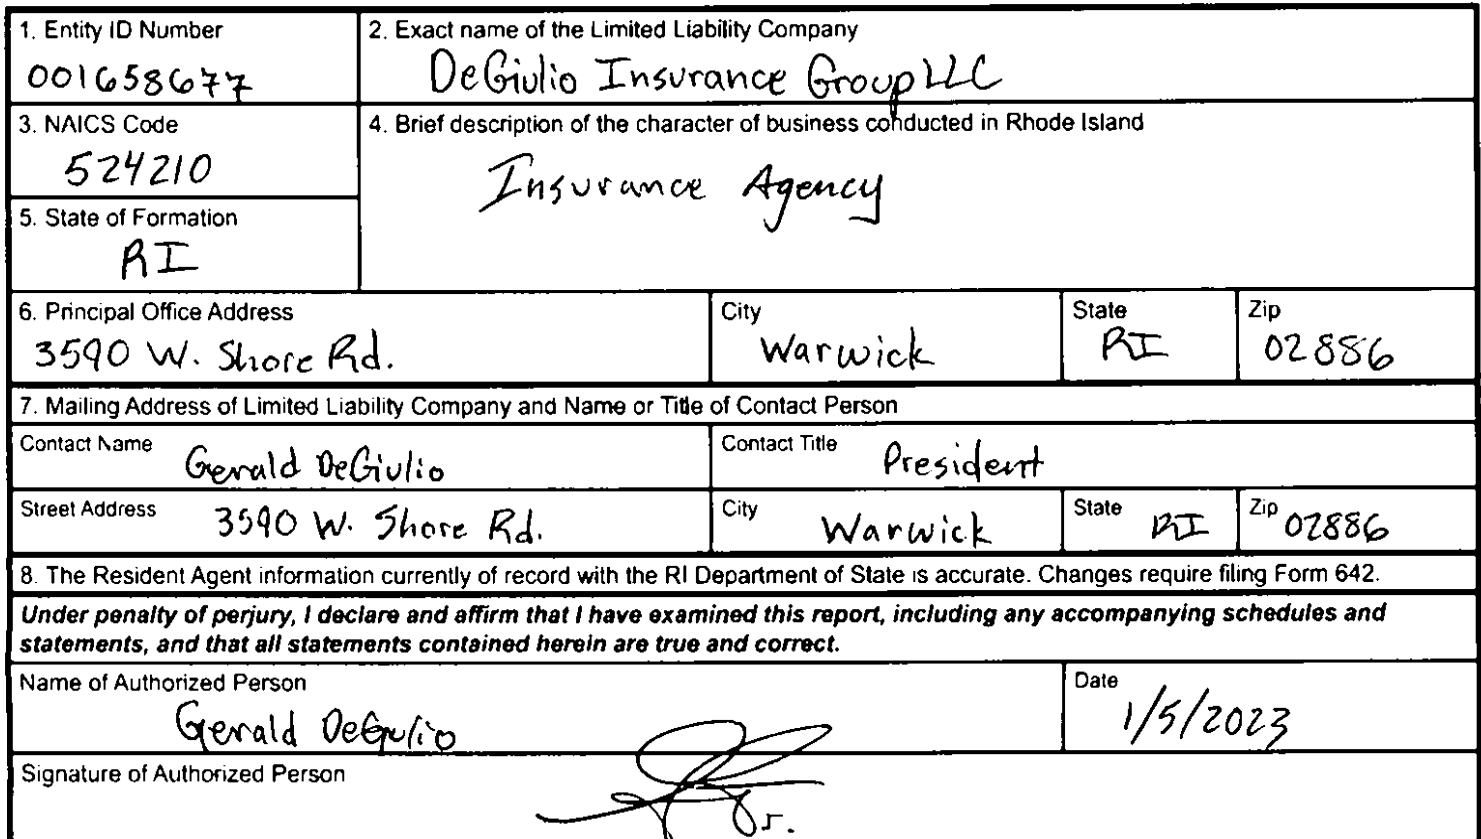 1. Entity ID Number
001658677
2. Exact name of the Limited Liability Company
DeGiulio Insurance Group LLC
3. NAICS Code
524210
4. Brief description of the character of business conducted in Rhode Island
Insurance Agency
5. State of Formation
RI
6. Principal Office Address
3590 W. Shore Rd.
City
Warwick
State
RI
Zip
02886
7. Mailing Address of Limited Liability Company and Name or Title of Contact Person
Contact Name
Gerald DeGiulio
Contact Title
President
Street Address
3590 W. Shore Rd.
City
Warwick
State
RI
Zip
02886
8. The Resident Agent information currently of record with the RI Department of State is accurate. Changes require filing Form 642.
Under penalty of perjury, I declare and affirm that I have examined this report, including any accompanying schedules and
statements, and that all statements contained herein are true and correct.
Name of Authorized Person
Gerald DeGiulio
Date
1/5/2023
Signature of Authorized Person